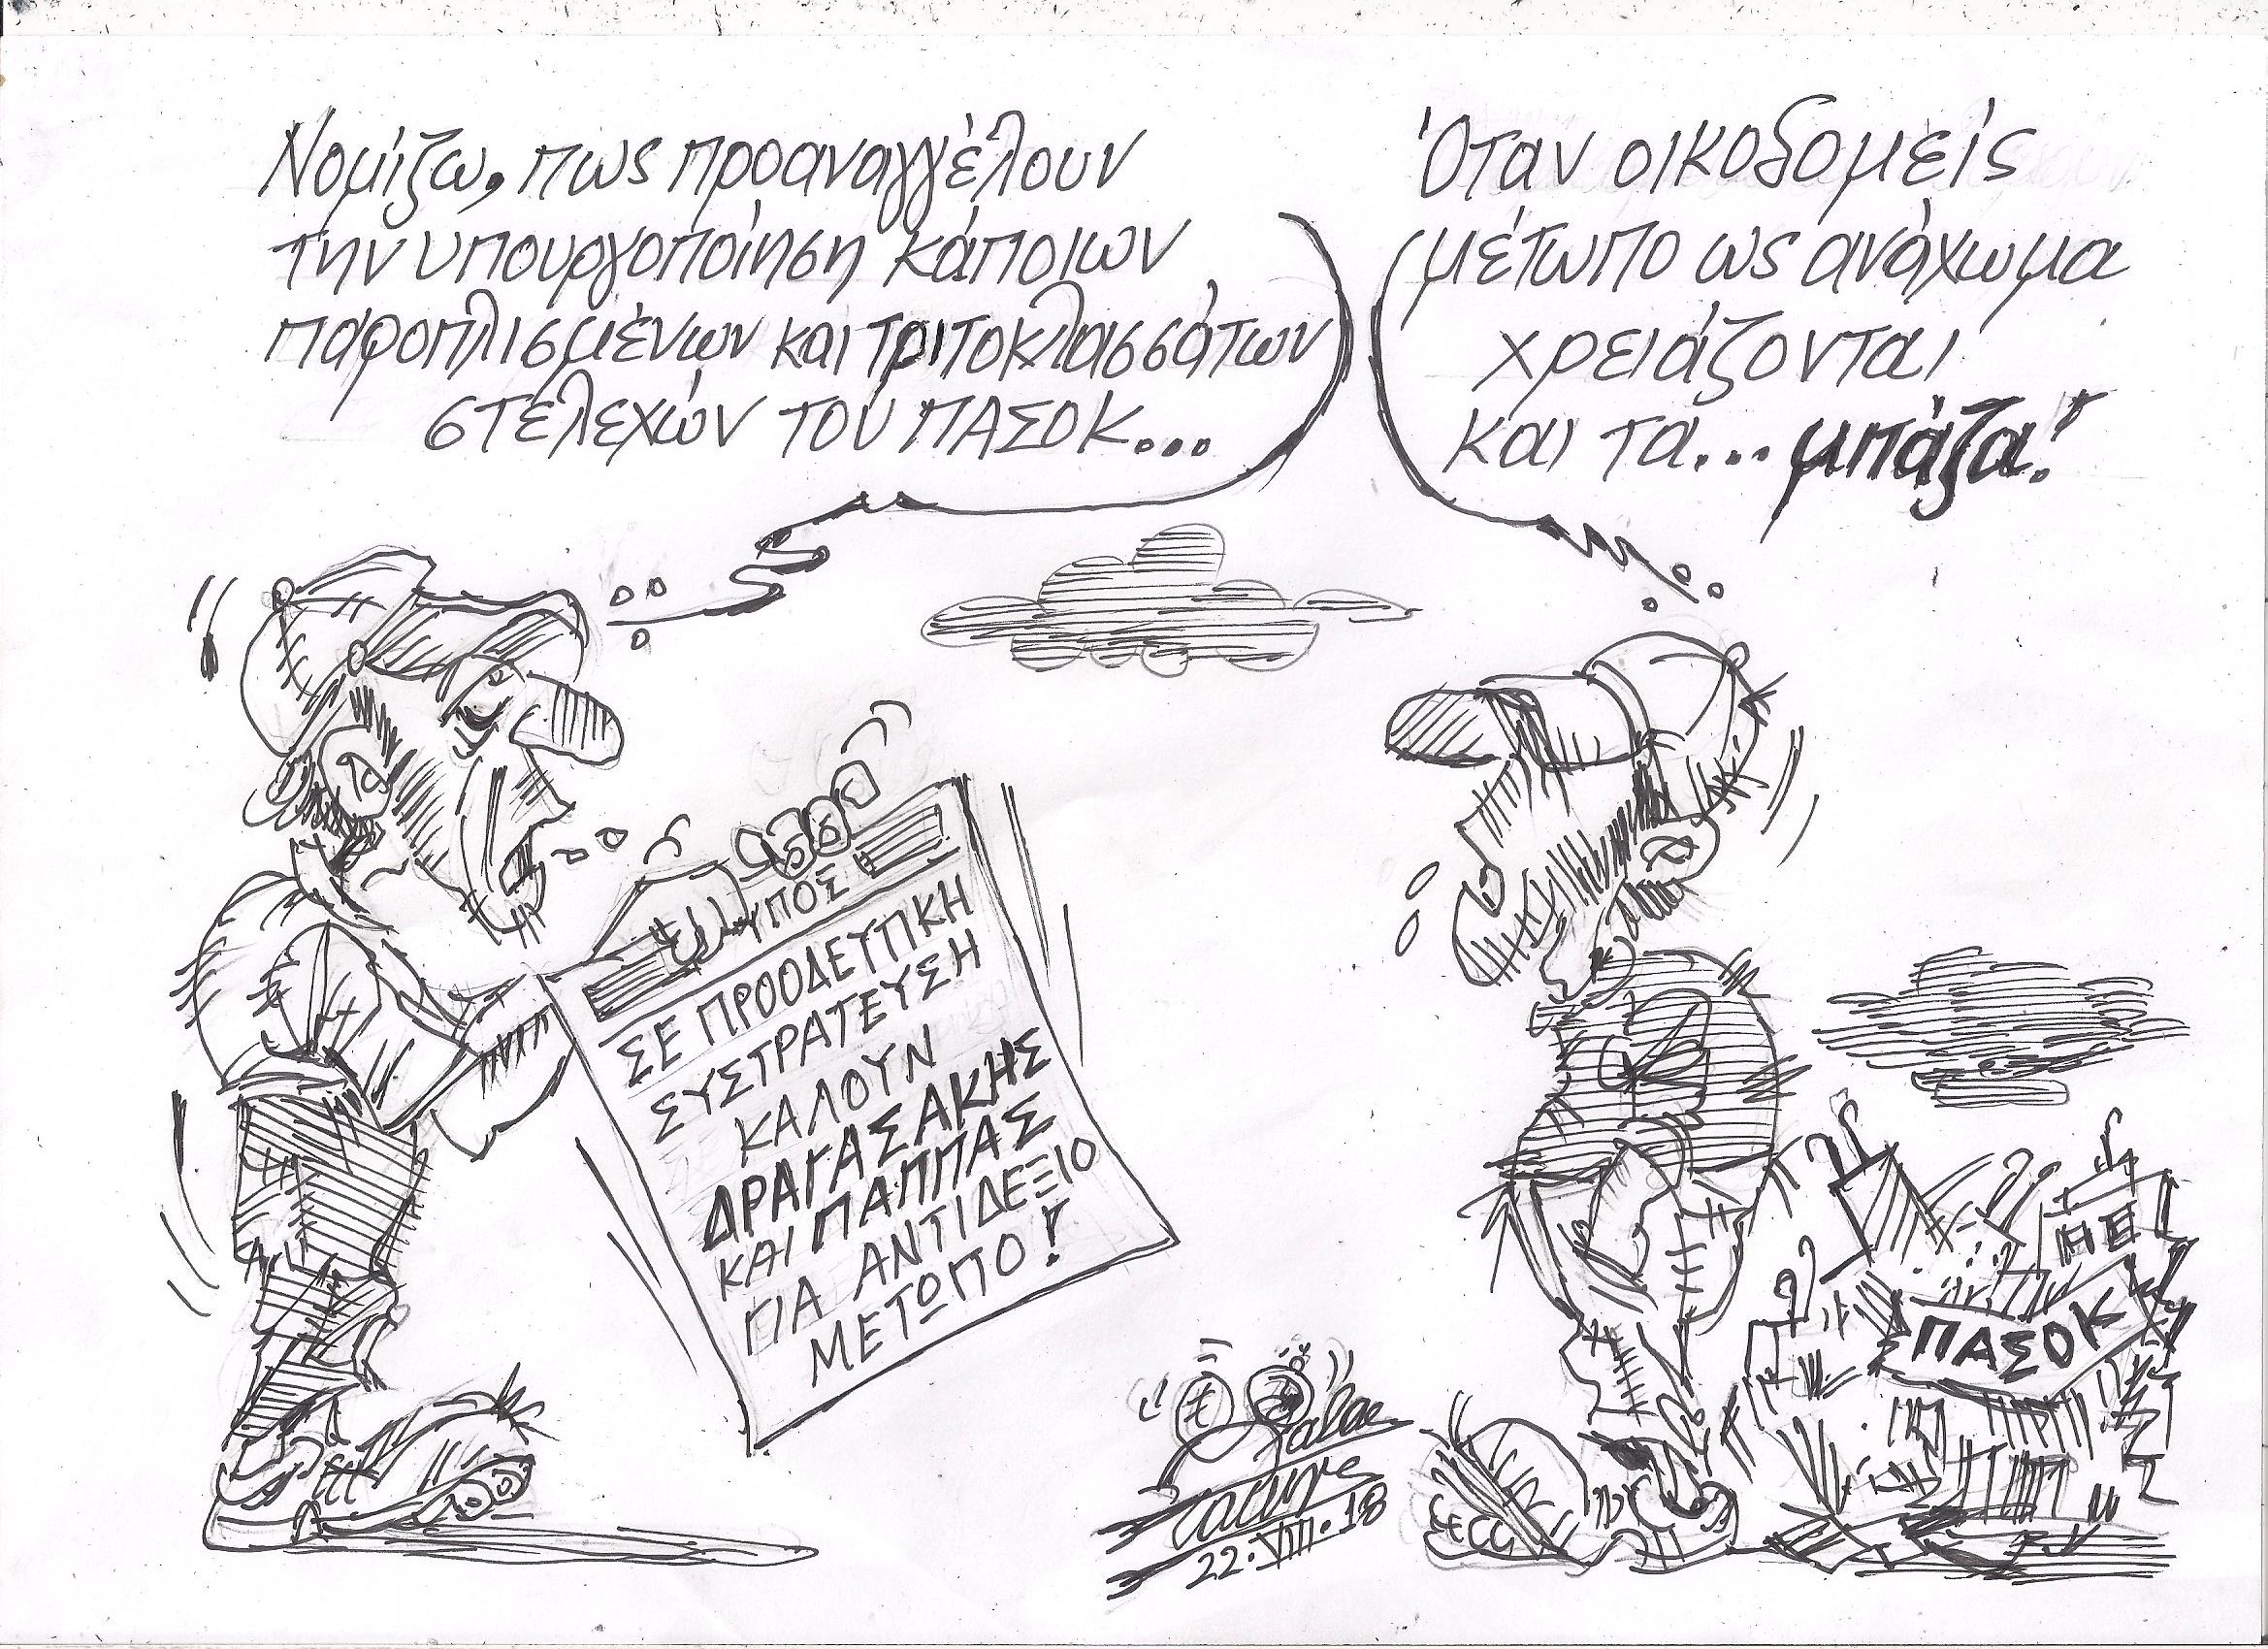 Νομίζω, πως προαναγγέλουν
την υπουργοποίηση κάποιων
παροπλισμένων και τριτοκλασσάτων
στελεχών του ΠΑΣΟΚ...
Όταν οικοδομείς
μέτωπο ως ανάχωμα
χρειάζονται
και τα... μπάζα!
ΤΥΠΟΣ
ΣΕ ΠΡΟΟΔΕΥΤΙΚΗ
ΣΥΣΤΡΑΤΕΥΣΗ
ΚΑΛΟΥΝ
ΔΡΑΓΑΣΑΚΗΣ
ΚΑΙ ΠΑΠΠΑΣ
ΓΙΑ ΑΝΤΙΔΕΞΙΟ
ΜΕΤΩΠΟ!
ΠΑΣΟΚ
22.VIII.18